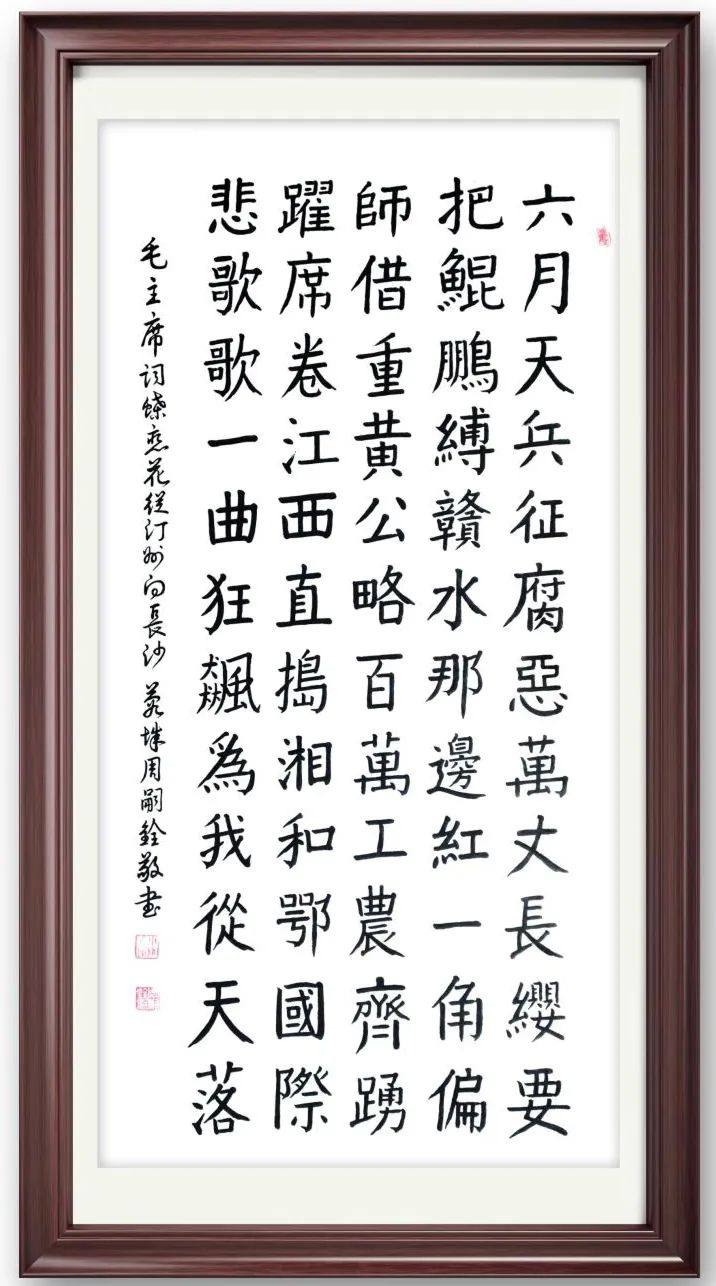 六月天兵征腐惡萬丈長纓要
把鯤鵬縛贛水那邊紅一角偏
師借重黄公略百萬工農齊踴
躍席卷江西直搗湘和鄂國際
悲歌歌一曲狂飆爲我從天落
毛主席詞蝶恋花從汀州向長沙 城周嗣銓敬書